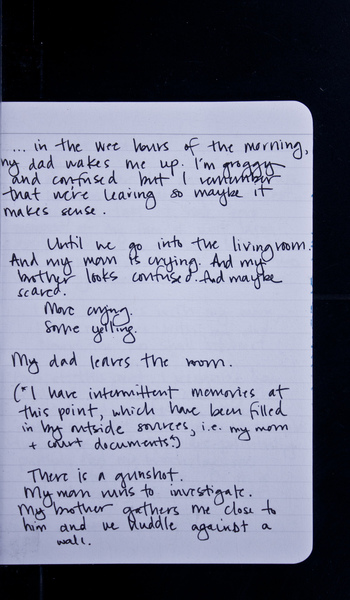 ... in the wee hours of the morning,
my dad wakes me up. I'm groggy
and confused but I remember
that we're leaving so maybe it
makes sense.
Until we go into the livingroom.
And my mom is crying. And my
brother looks confused. And maybe
scared.
More crying.
Some yelling.
My dad leaves the room.
(*I have intermittent memories at
this point, which have been filled
in by outside sources, i.e. my mom
+ court documents.*)
There is a gunshot.
My mom runs to investigate.
My brother gathers me close to
him and we huddle against a
wall.